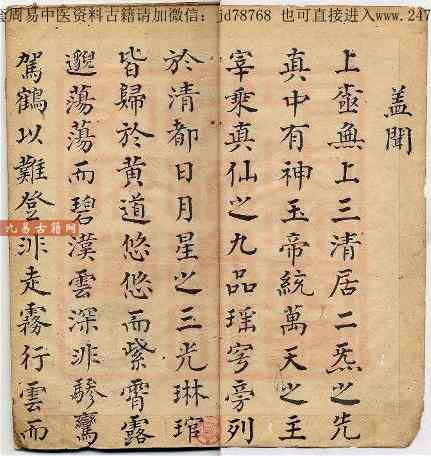 周易中医资料古籍请加微信:jd78768 也可直接进入www.247
九易古籍网
盖聞
上虛無上三清居二炁之先
真中有神玉帝統萬天之主
宰乘真仙之九品瑶穹旁列
於清都日月星之三光琳琯
皆歸於黄道悠悠而紫霄露
邈蕩蕩而碧漢雲深非驂鸞
駕鶴以難登非走霧行雲而